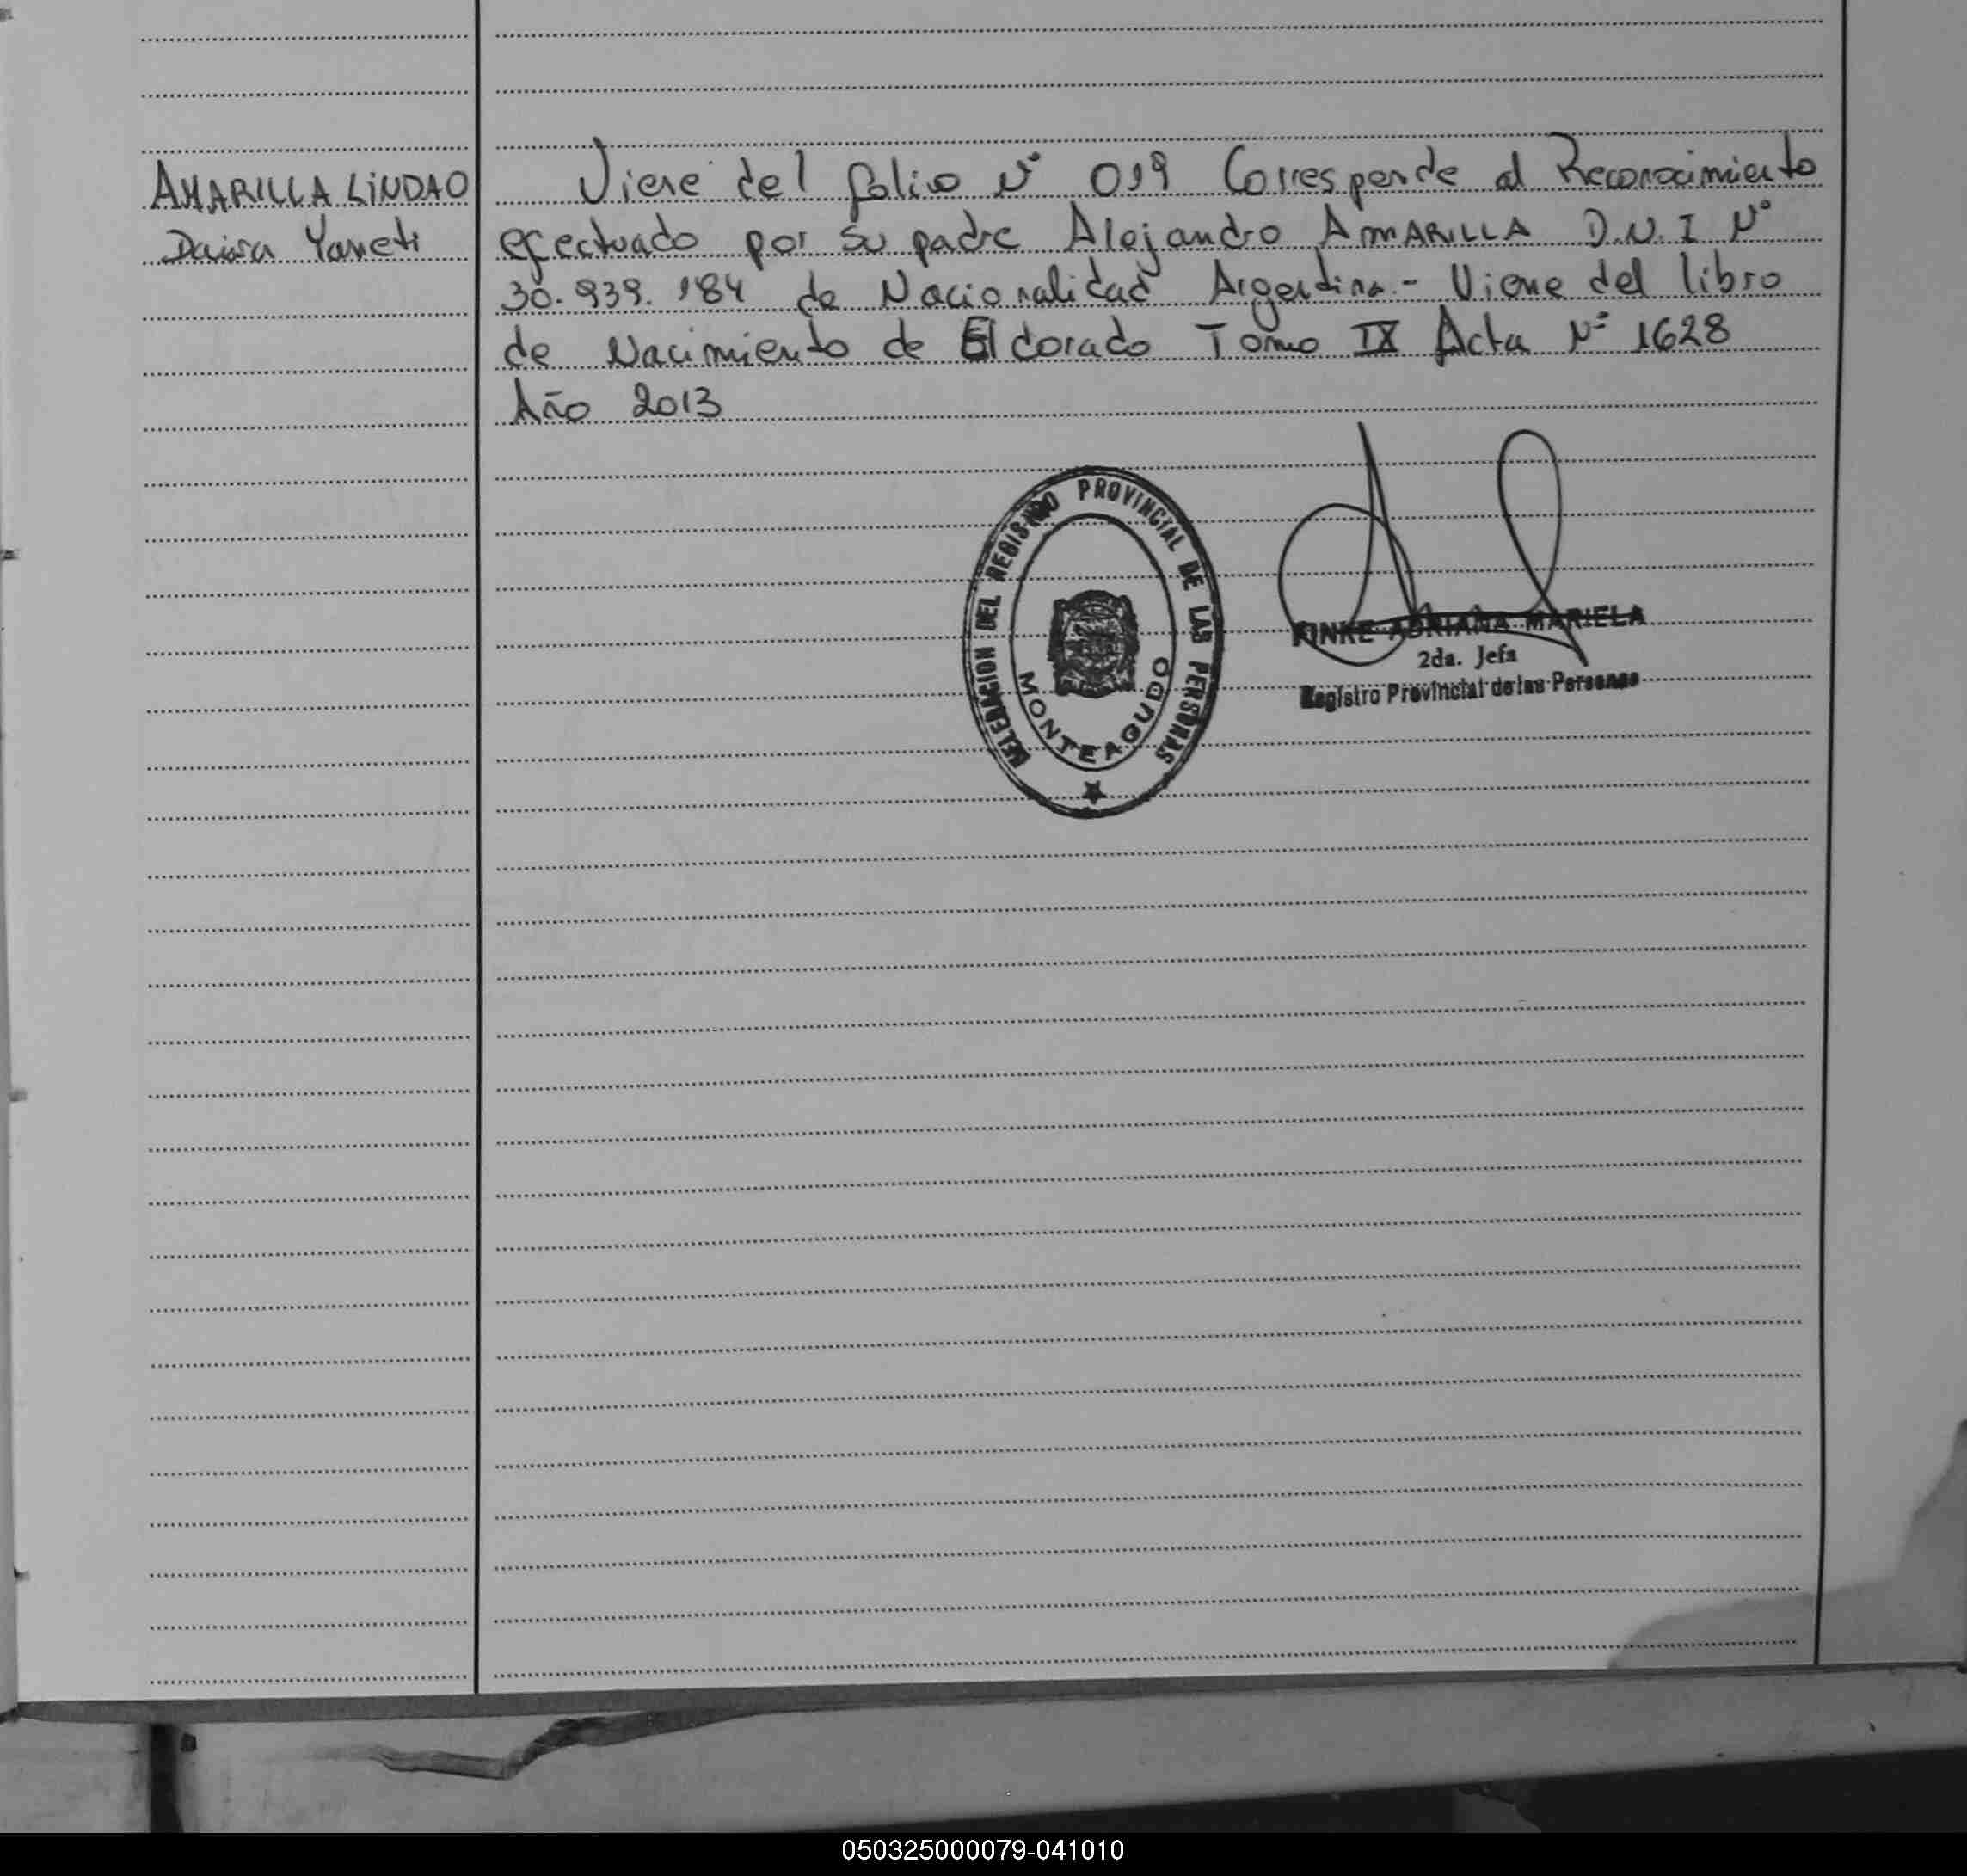 AMARILLA LINDAO
Daiara Yaneti
Viene del folio Nº 019 Corresponde al Reconocimiento
efectuado por su padre Alejandro AMARILLA D.N.I Nº
30.939.184 de Nacionalidad Argentina.- Viene del libro
de Nacimiento de Eldorado Tomo IX Acta Nº 1628
Año 2013
DELEGACION DEL REGISTRO PROVINCIAL DE LAS PERSONAS
MONTEAGUDO
KINKE ADRIANA MARIELA
2da. Jefa
Registro Provincial de las Personas
050325000079-041010